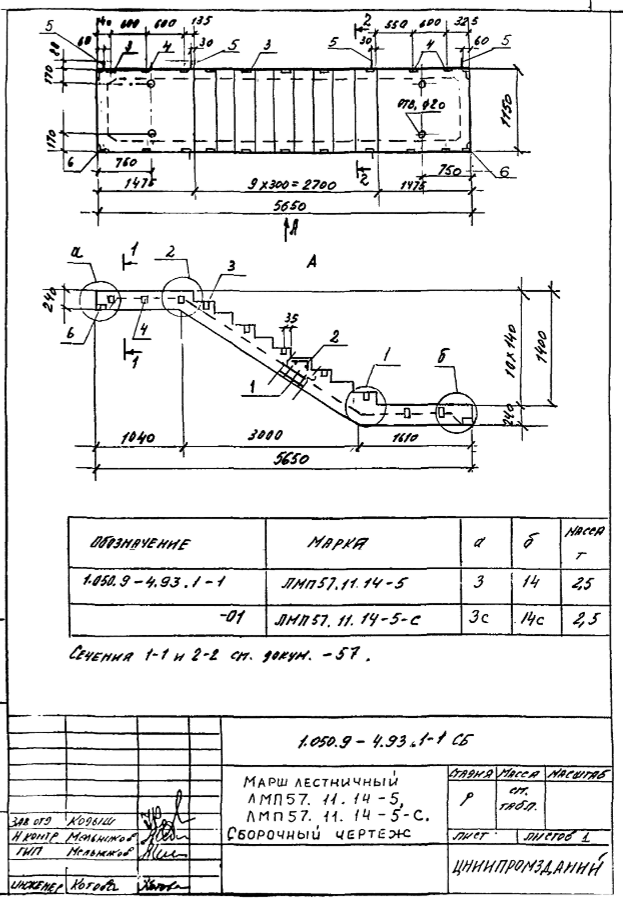 140 600 600 135 2 550 600 325
5 60 3 4 30 5 3 5 30 4 60 5
80
170
170
ОТВ. Ф20
1150
6 760 750 6
1475 9×300=2700 2 1475
5650
А
а 1 2 3 А
240
6 4 1
35 2
1
1 б
10×140
1400
240
1040 3000 1610
5650
ОБОЗНАЧЕНИЕ МАРКА а б МАССА Т
1.050.9-4.93.1-1 ЛМП57.11.14-5 3 14 2,5
-01 ЛМП57.11.14-5-С 3с 14с 2,5
СЕЧЕНИЯ 1-1 И 2-2 СМ. ДОКУМ. -57.
1.050.9-4.93.1-1 СБ
МАРШ ЛЕСТНИЧНЫЙ
ЛМП57.11.14-5,
ЛМП57.11.14-5-С.
СБОРОЧНЫЙ ЧЕРТЕЖ
СТАДИЯ МАССА МАСШТАБ
Р СМ. ТАБЛ.
ЛИСТ ЛИСТОВ 1
ЦНИИПРОМЗДАНИЙ
ЗАВ ОТД КОДЫШ
Н КОНТР МЕЛЬНИКОВ
ГИП МЕЛЬНИКОВ
ИНЖЕНЕР КОТОВА